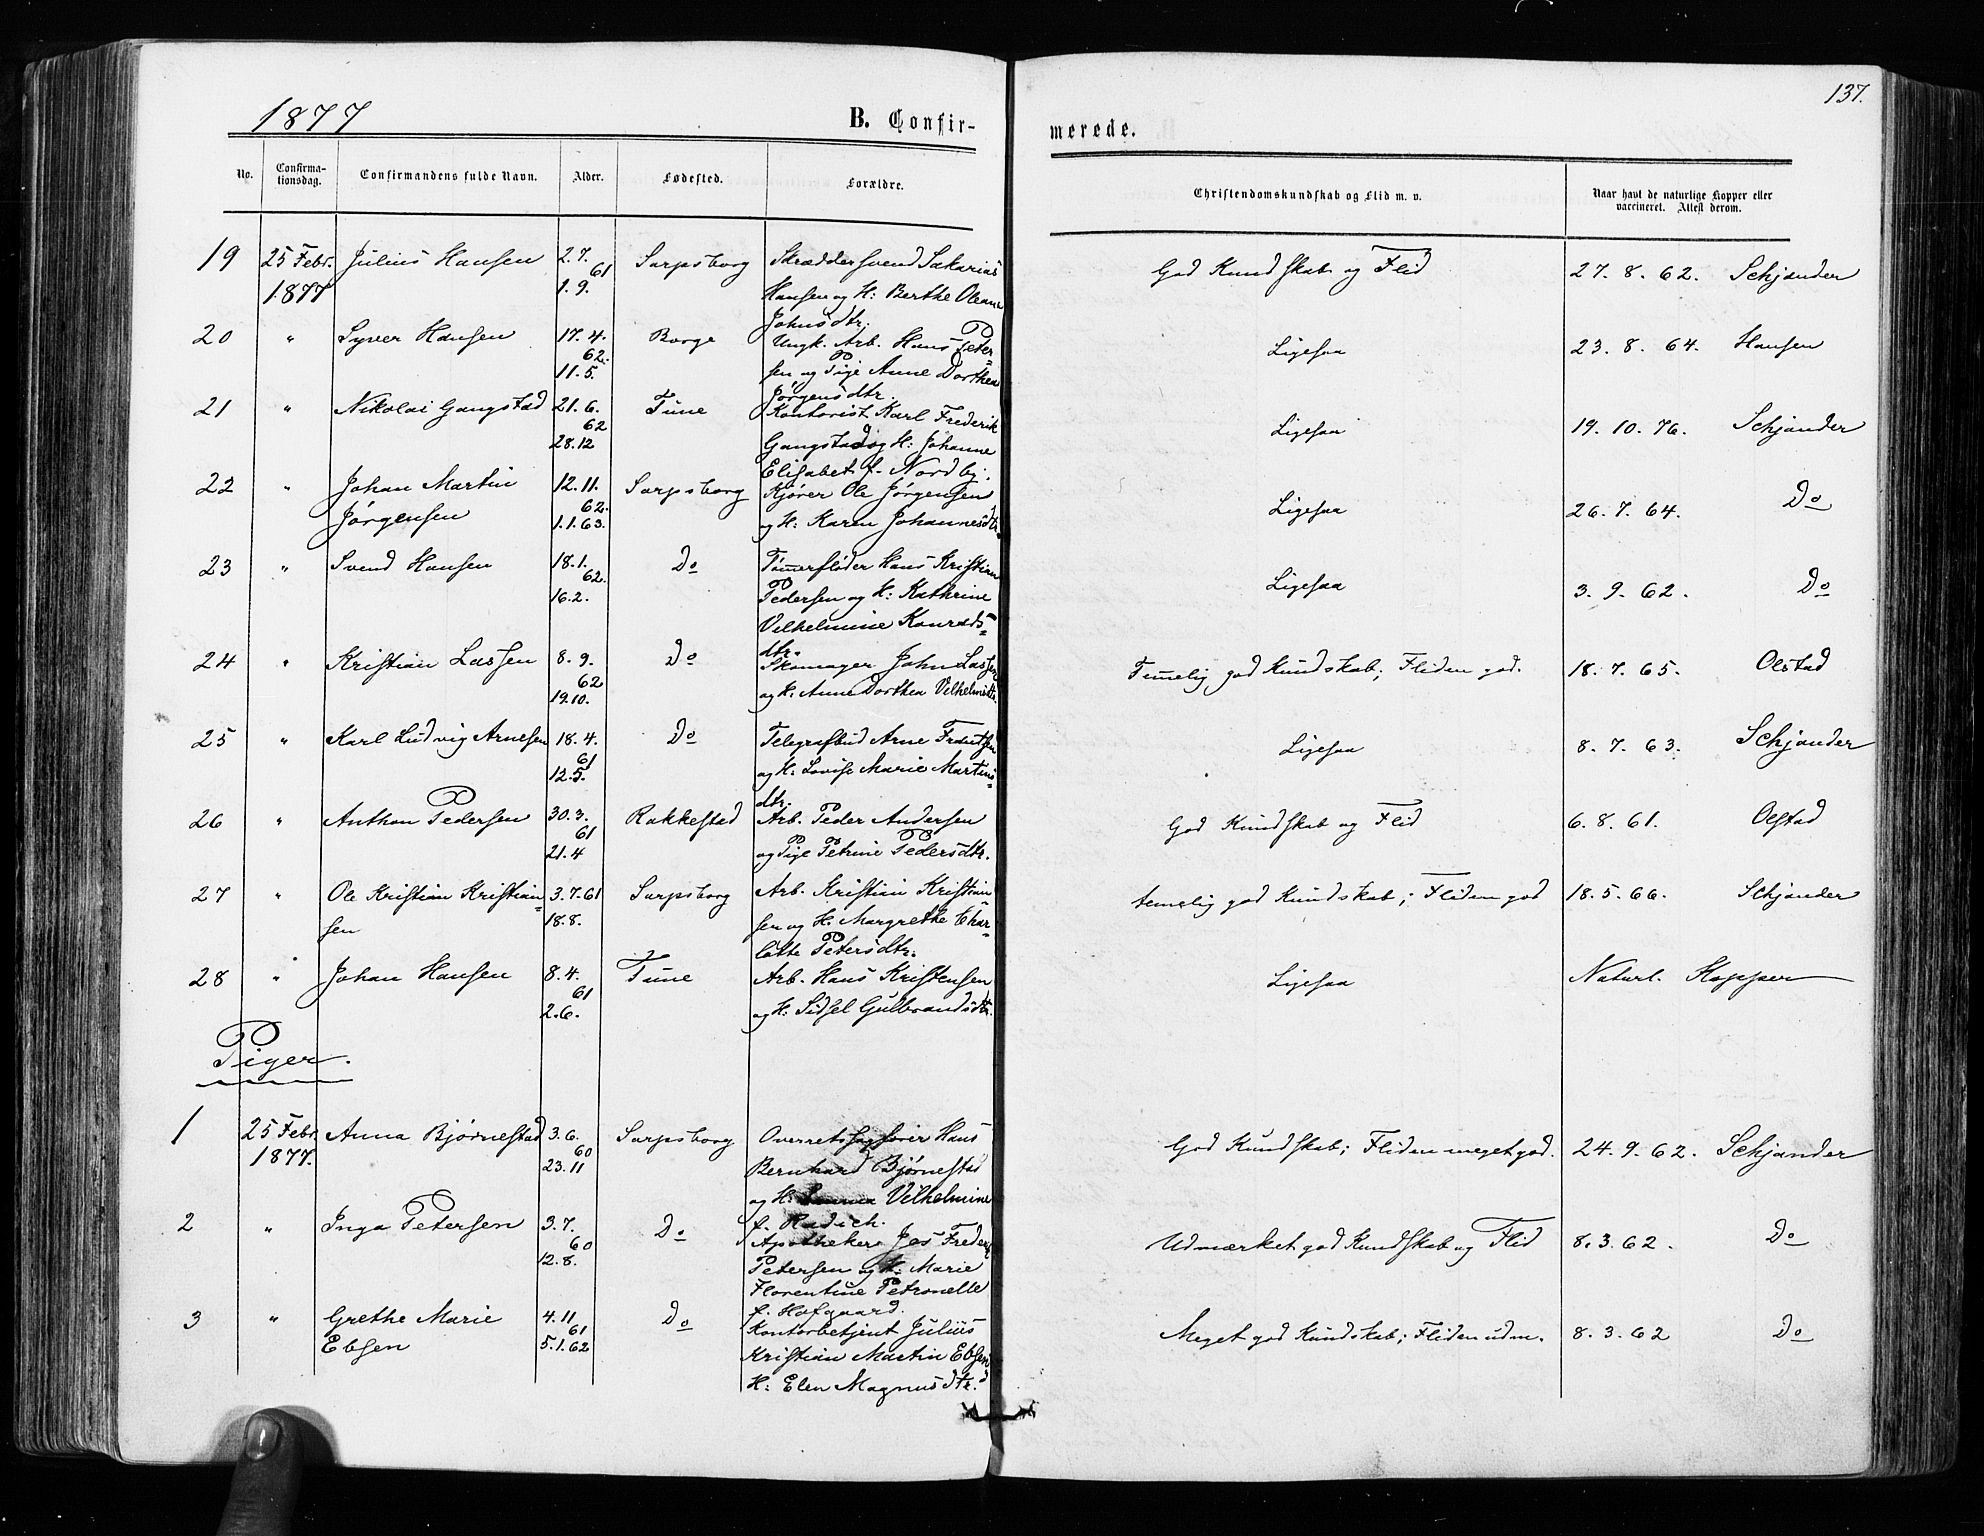 137.
1877 B. Confirmerede.
No. Confirmationsdag. Confirmandens fulde Navn. Alder. Fødested. Forældre. Christendomskundskab og Flid m. v. Naar havt de naturlige Kopper eller vaccineret. Attest derom.
19 25 Febr. Julius Hansen 2.7. Sarpsborg Skræddersvend Sakarias God Kundskab og Flid 27. 8. 62. Schjander
1877 61 1.9. Hansen og H: Berthe Oleana
Johnsdtr.
20 " Syver Hansen 17.4. Borge Ungk. Arb. Hans Peter= Ligesaa 23. 8. 64. Hansen
62. 11.5. sen og Pige Anne Dorthea
Jørgensdtr.
21 " Nikolai Gangstad 21.6. Tune Kontorist Karl Frederik Ligesaa 19. 10. 76. Schjander
62 28.12 Gangstad og H: Johanne
Elisabet f. Nordby.
22 " Johan Martin 12.11. Sarpsborg Kjører Ole Jørgensen Ligesaa 26. 7. 64. Do
Jørgensen 62. 1.1.63. og H: Karen Johannesdtr.
23 " Svend Hansen 18.1. Do Tømerfløder Hans Kristian Ligesaa 3. 9. 62. Do
62. 16.2. Pedersen og H: Kathrine
Vilhelmine Konrads=
dtr.
24 " Kristian Lassen 8.9. Do Skomager John Lassen Temelig god Kundskab; Fliden god. 18. 7. 65. Olstad
62 19.10. og H: Anne Dorthea Vilhelmsdtr.
25 " Karl Ludvig Arnesen 18.4. Do Telegrafbud Arne Ligesaa 8. 7. 63. Schjander
61 12.5. og H: Lovise Marie Martins=
dtr.
26 " Anthon Pedersen 30.3. Rakkestad Arb. Peder Andersen God Kundskab og Flid 6. 8. 61. Olstad
61 21.4 og Pige Petrine Pedersdtr.
27 " Ole Kristian Kristian= 3.7.61 Sarpsborg Arb. Kristian Kristian= temelig god Kundskab; Fliden god 18. 5. 66. Schjander
sen 18.8. sen og H. Margrethe Char=
lotte Petersdtr.
28 " Johan Hansen 8.4. Tune Arb. Hans Kristensen Ligesaa Naturl. Kopper
61 2.6. og H: Sidsel Gulbrandsdtr.
Piger.
1 25 Febr. Anna Bjørnestad 3.6. Sarpsborg Overretssagfører Hans God Kundskab; Fliden meget god. 24. 9. 62. Schjander
1877. 60 23.11 Bernhard Bjørnestad
og H: Vilhelmine
f. Radich.
2 " Inga Petersen 3.7. Do Apotheker Jes Frederik Udmærket god Kundskab og Flid 8. 3. 62. Do
60 12.8. Petersen og H: Marie
Florentine Petronelle
f. Hofgaard.
3 " Grethe Marie 4.11 Do Kontorbetjent Julius Meget god Kundskab; Fliden udm. 8. 3. 62 Do
Ebsen 61 5.1.62 Kristian Martin Ebsen
H: Elen Magnusdtr.